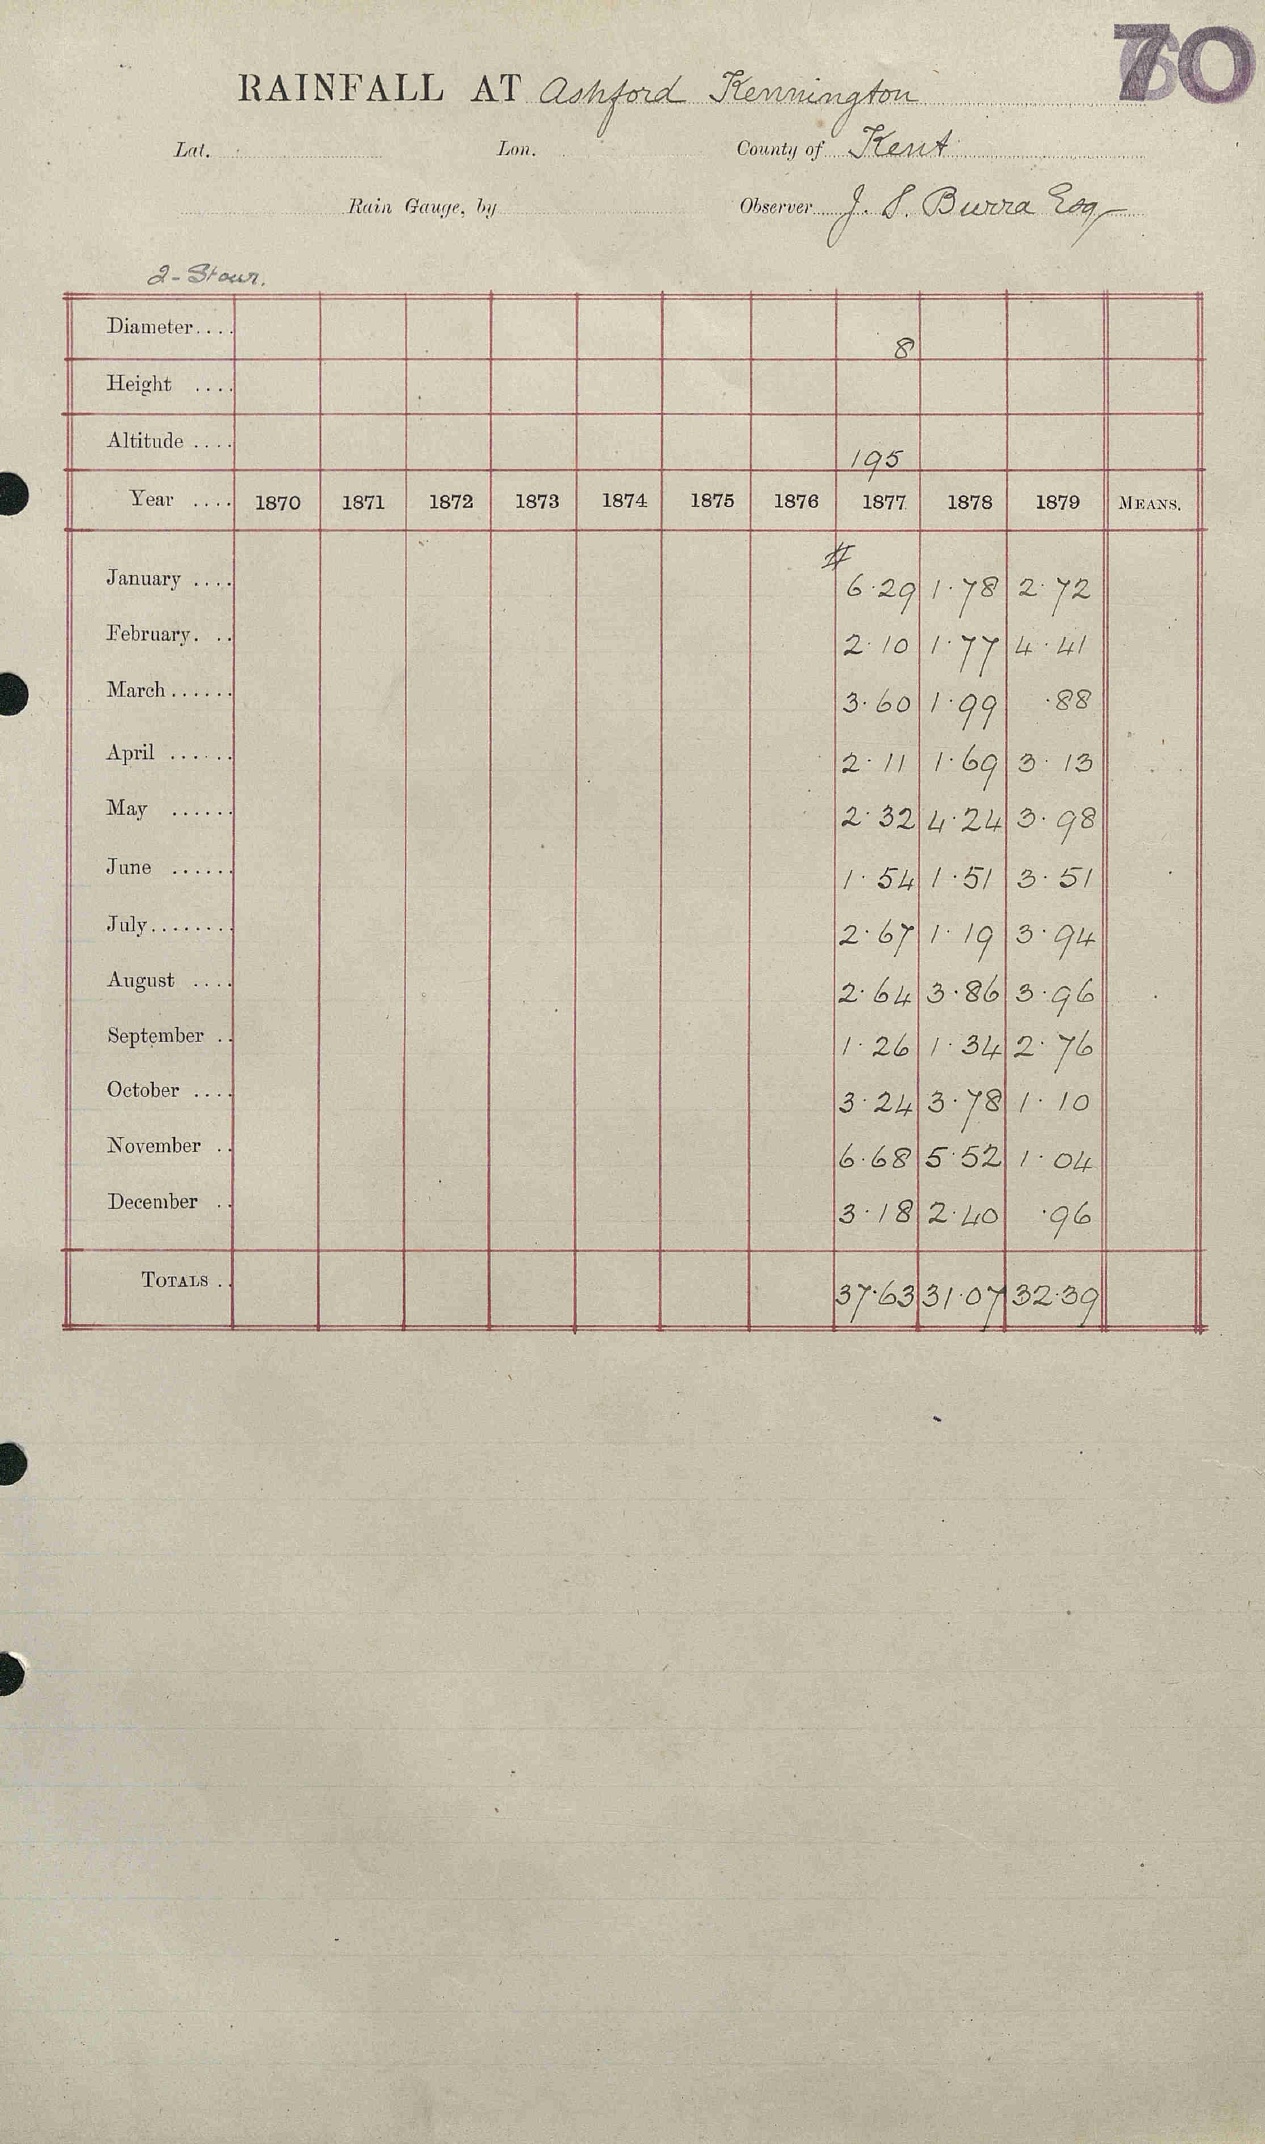 70
RAINFALL AT Ashford Kennington
Lat. Lon. County of Kent
Rain Gauge, by Observer J. S. Burra Esq
2 - Stour.
Diameter.... 8
Height ....
Altitude .... 195
Year .... 1870 1871 1872 1873 1874 1875 1876 1877 1878 1879 MEANS.
#
January .... 6·29 1·78 2·72
February. .. 2·10 1·77 4·41
March...... 3·60 1·99 ·88
April ...... 2·11 1·69 3·13
May ...... 2·32 4·24 3·98
June ...... 1·54 1·51 3·51
July........ 2·67 1·19 3·94
August .... 2·64 3·86 3·96
September .. 1·26 1·34 2·76
October .... 3·24 3·78 1·10
November .. 6·68 5·52 1·04
December .. 3·18 2·40 ·96
TOTALS .. 37·63 31·07 32·39